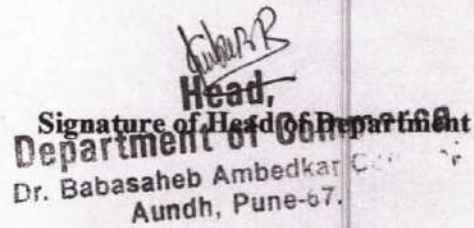 Head,
Signature of Head of Department
Department of Commerce
Dr. Babasaheb Ambedkar
Aundh, Pune-67.